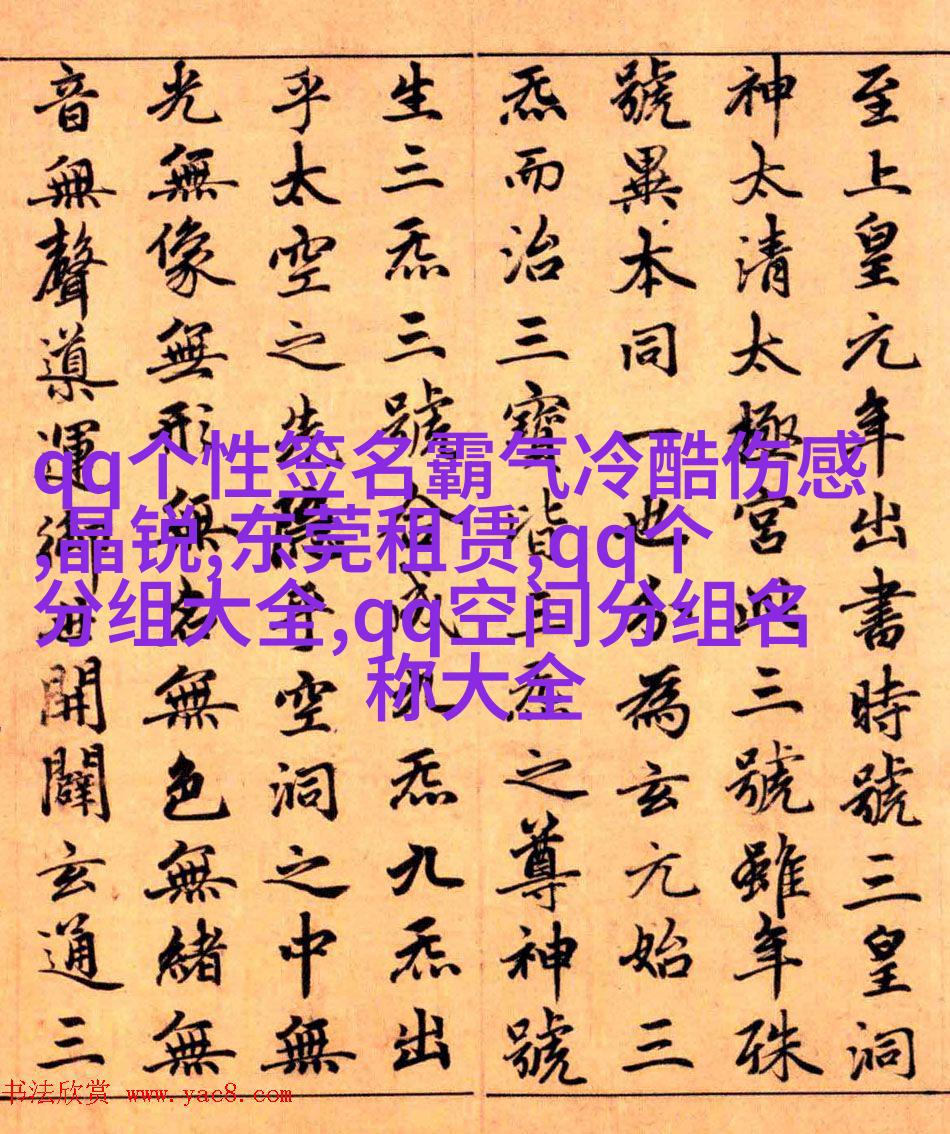 至上皇元年出書時號三皇洞
神太清太極宮此三號雖年殊
號異本同一也分為玄元始三
炁而治三寶皆三炁之尊神號
生三炁三號合成九炁九炁出
乎太空之先隱乎空洞之中無
光無像無形無名無色無緒無
音無聲導運御世開闢玄通三
qq个性签名霸气冷酷伤感
,晶锐,东莞租赁,qq个
分组大全,qq空间分组名
称大全
书法欣赏 www.yac8.com